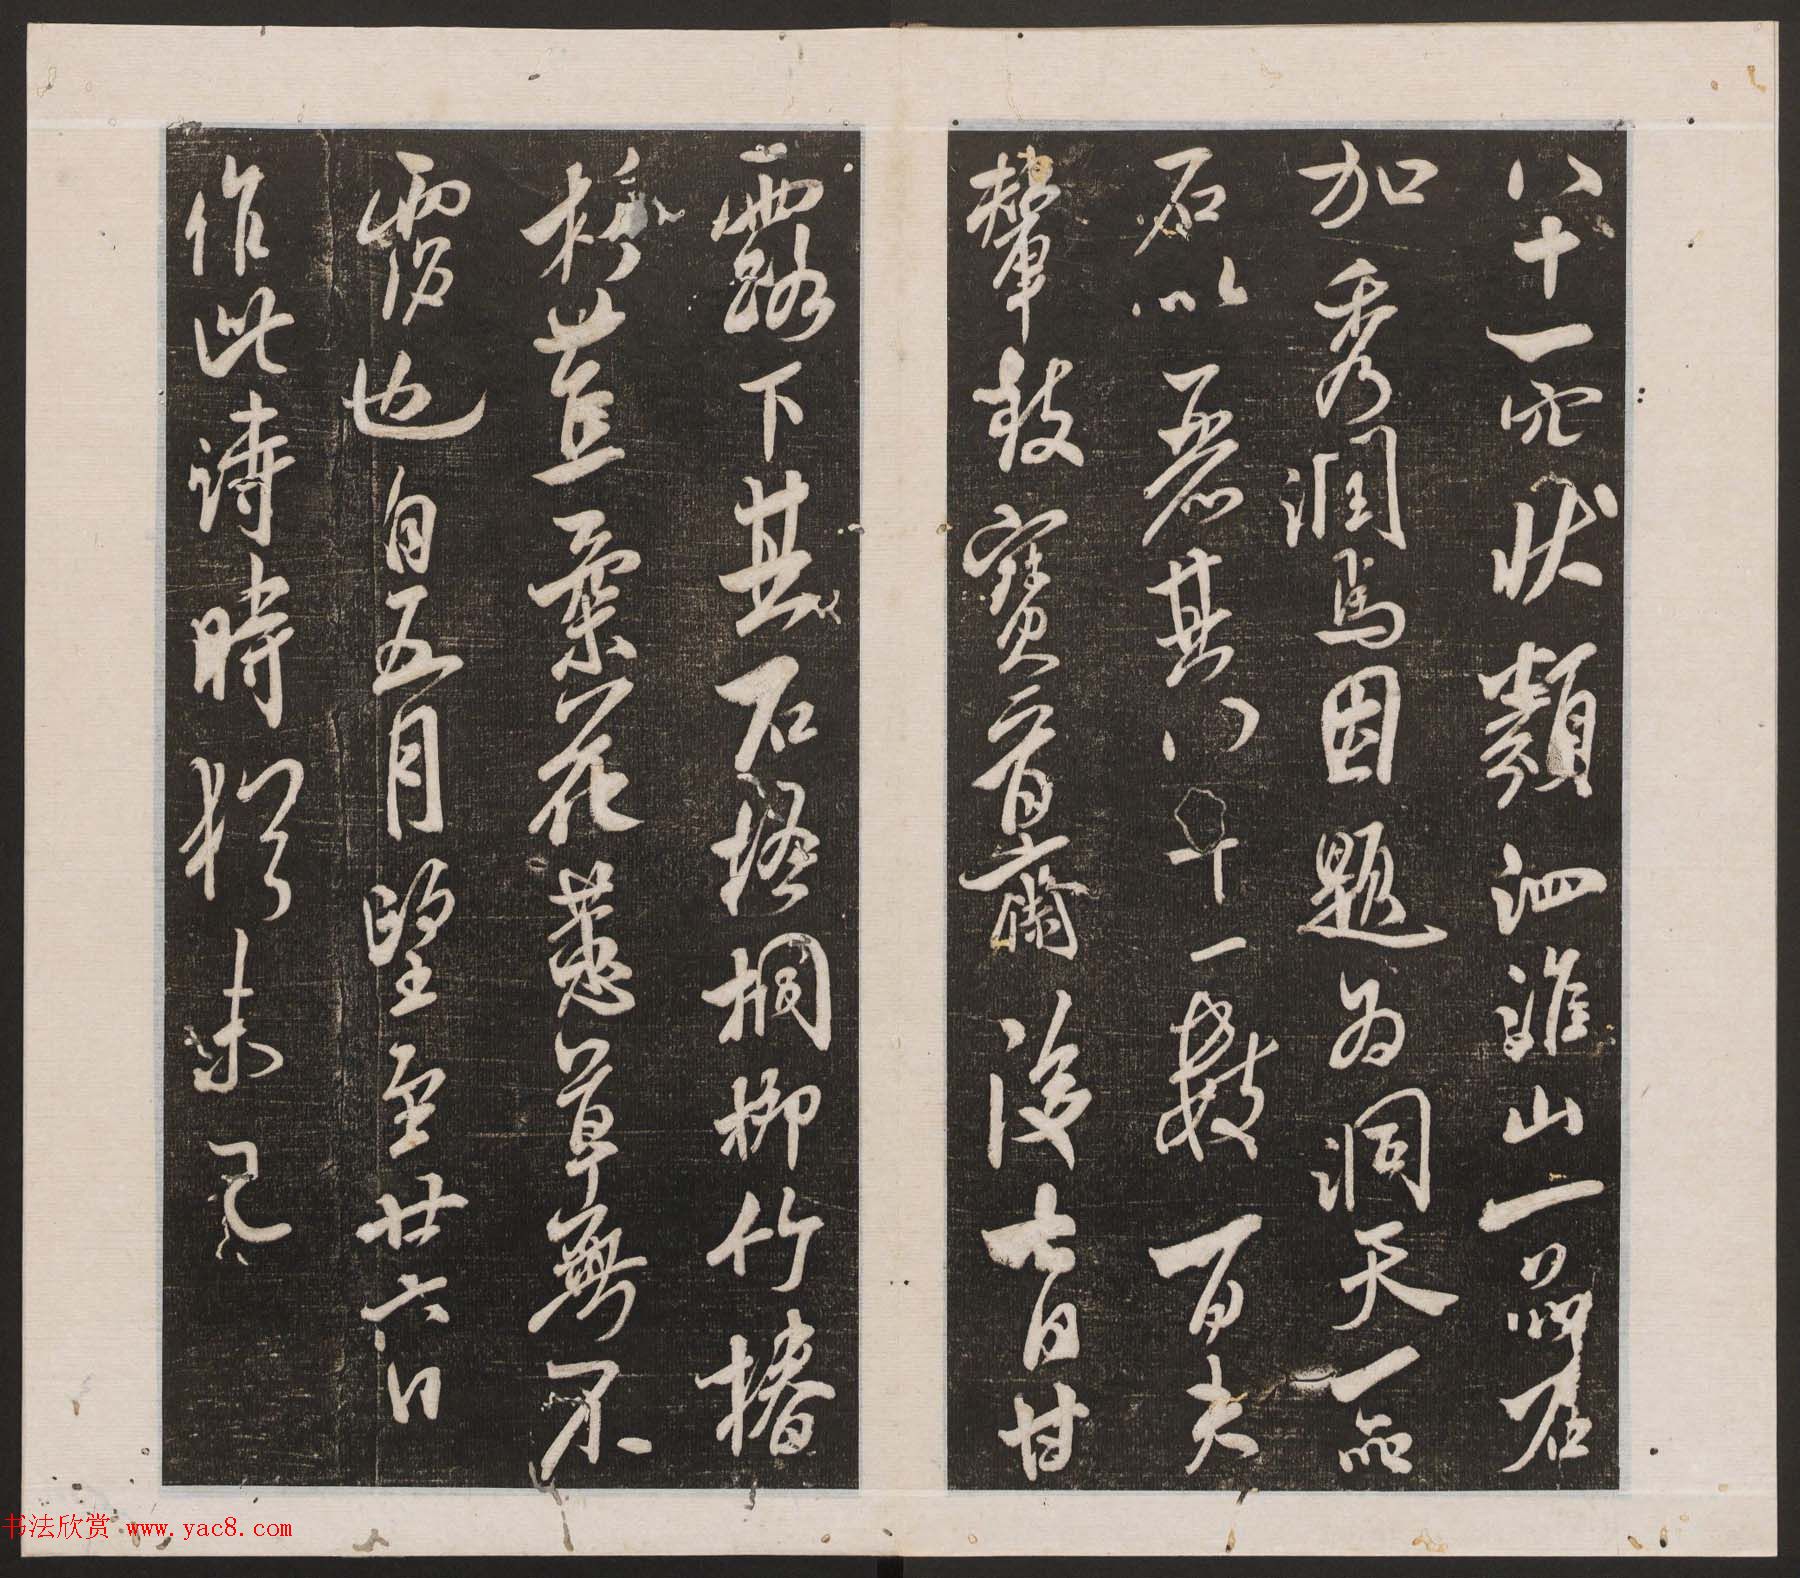 八十一穴狀類泗淮山一品石
加秀潤焉因題為洞天一品
石以麗其八十一數百夫
輦致寶晉齋後七日甘
露下其石梧桐柳竹椿
杉苴花蕙草無不
霑也自五月望至廿六日
作此詩時猶未已
书法欣赏 www.yac8.com